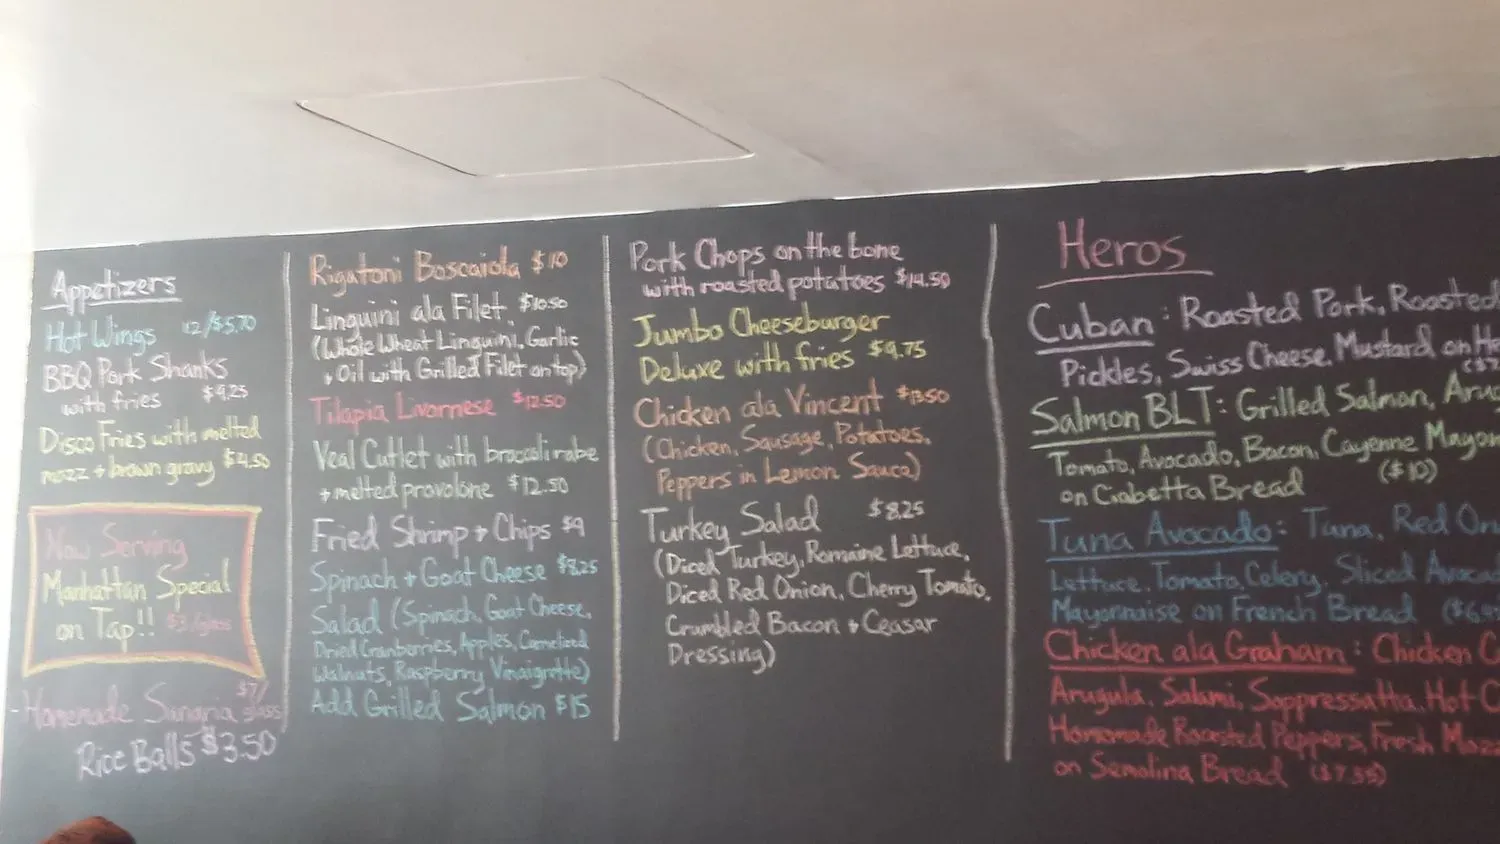 Appetizers
Hot Wings 12/$5.70
BBQ Pork Shanks
with fries $9.25
Disco Fries with melted
mozz + brown gravy $4.50
Now Serving
Manhattan Special
on Tap!! $3/glass
-Homemade Sangria $7/
glass
Rice Balls $3.50
Rigatoni Boscaiola $10
Linguini ala Filet $10.50
(Whole Wheat Linguini, Garlic
+ Oil with Grilled Filet on top)
Tilapia Livornese $12.50
Veal Cutlet with broccoli rabe
+ melted provolone $12.50
Fried Shrimp + Chips $9
Spinach + Goat Cheese $8.25
Salad (Spinach, Goat Cheese,
Dried Cranberries, Apples,
Walnuts, Raspberry Vinaigrette)
Add Grilled Salmon $15
Pork Chops on the bone
with roasted potatoes $14.50
Jumbo Cheeseburger
Deluxe with fries $9.75
Chicken ala Vincent $13.50
(Chicken, Sausage, Potatoes,
Peppers in Lemon Sauce)
Turkey Salad $8.25
(Diced Turkey, Romaine Lettuce,
Diced Red Onion, Cherry Tomato,
Crumbled Bacon + Ceasar
Dressing)
Heros
Cuban: Roasted Pork, Roasted
Pickles, Swiss Cheese, Mustard on He
Salmon BLT: Grilled Salmon, Arug
Tomato, Avocado, Bacon, Cayenne Mayon
on Ciabetta Bread ($10)
Tuna Avocado: Tuna, Red On
Lettuce, Tomato, Celery, Sliced Avocad
Mayonnaise on French Bread
Chicken ala Graham: Chicken C
Arugula, Salami, Soppressatta, Hot C
Homemade Roasted Peppers, Fresh Mozz
on Semolina Bread ($7.95)